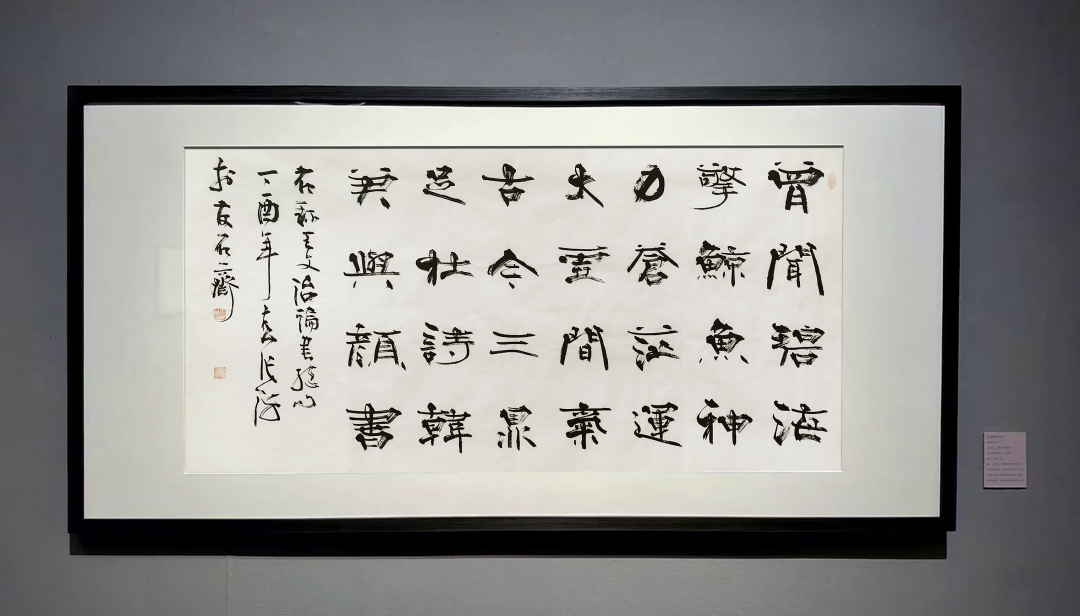 曾聞碧海
擎鯨魚神
力蒼茫運
太虛間氣
古今三鼎
足杜詩韓
筆與顏書
右錄王文治論書絕句
丁酉年
於友石齋